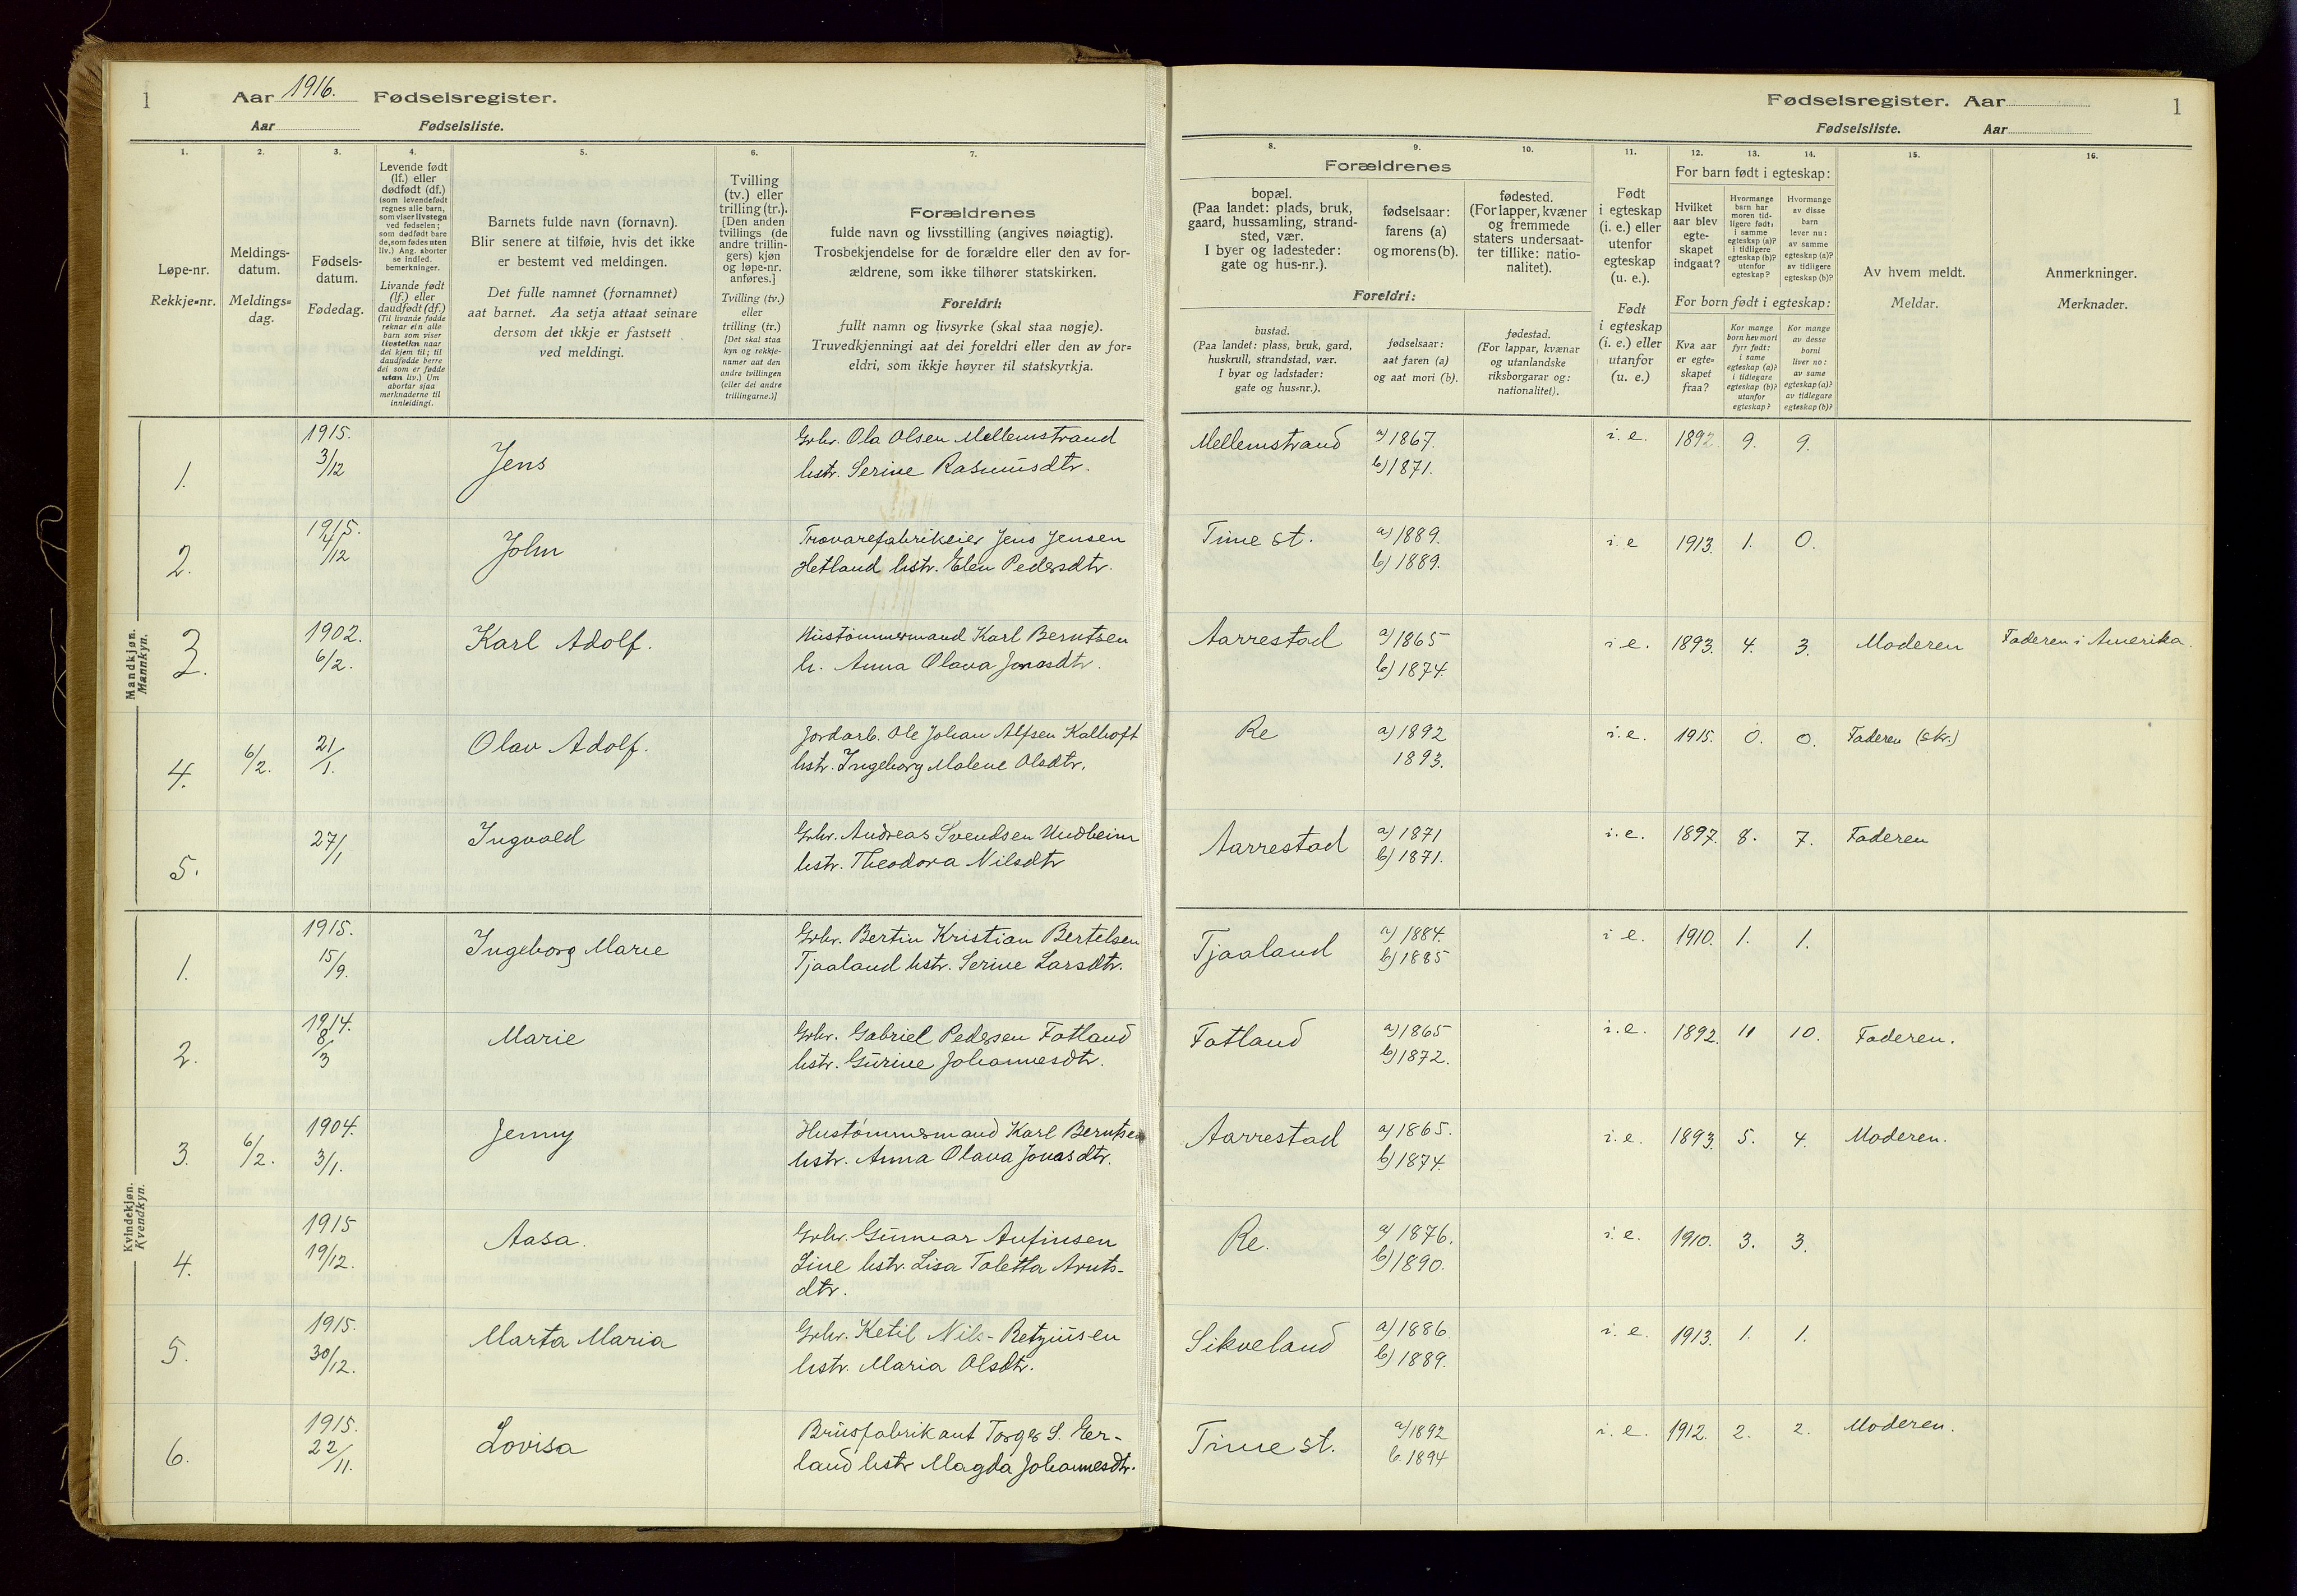 1
Aar 1916. Fødselsregister.
Aar Fødselsliste.
Fødselsregister. Aar
1
Fødselsliste. Aar
1. 2. 3. 4. 5. 6. 7.
Løpe-nr.
Rekkje-nr.
Meldings-
datum.
Meldings-
dag.
Fødsels-
datum.
Fødedag.
Levende født
(lf.) eller
dødfødt (df.)
(som levendefødt
regnes alle barn,
som viser livstegn
ved fødselen;
som dødfødt bare
de, som fødes uten
liv.) Ang. aborter
se indled.
bemerkninger.
Livande født
(lf.) eller
daudfødt (df.)
(Til livande fødde
reknar ein alle
barn som viser
livsteikn naar
dei kjem til; til
daudfødde berre
dei som er fødde
utan liv.) Um
abortar sjaa
merknaderne til
innleidingi.
Barnets fulde navn (fornavn).
Blir senere at tilføie, hvis det ikke
er bestemt ved meldingen.
Det fulle namnet (fornamnet)
aat barnet. Aa setja attaat seinare
dersom det ikkje er fastsett
ved meldingi.
Tvilling
(tv.) eller
trilling (tr.).
[Den anden
tvillings (de
andre trillin-
gers) kjøn
og løpe-nr.
anføres.]
Tvilling (tv.)
eller
trilling (tr.)
[Det skal staa
kyn og rekkje-
namer aat den
andre tvillingen
(eller dei andre
trillingarne.)]
Forældrenes
fulde navn og livsstilling (angives nøiagtig).
Trosbekjendelse for de forældre eller den av for-
ældrene, som ikke tilhører statskirken.
Foreldri:
fullt namn og livsyrke (skal staa nøgje).
Truvedkjenningi aat dei foreldri eller den av for-
eldri, som ikkje høyrer til statskyrkja.
8. 9. 10. 11. 12. 13. 14. 15. 16.
Forældrenes
bopæl.
(Paa landet: plads, bruk,
gaard, hussamling, strand-
sted, vær.
I byer og ladesteder:
gate og hus-nr.).
fødselsaar:
farens (a)
og morens (b).
fødested.
(For lapper, kvæner
og fremmede
staters undersaat-
ter tillike: natio-
nalitet).
Foreldri:
bustad.
(Paa landet: plass, bruk, gard,
huskrull, strandstad, vær.
I byar og ladstader:
gate og hus-nr.).
fødselsaar:
aat faren (a)
og aat mori (b).
fødestad.
(For lappar, kvænar
og utanlandske
riksborgarar og:
nationalitet).
Født
i egteskap
(i. e.) eller
utenfor
egteskap
(u. e.).
Født
i egteskap
(i. e.) eller
utanfor
(u. e.)
For barn født i egteskap:
Hvilket
aar blev
egte-
skapet
indgaat?
Hvormange
barn har
moren tid-
ligere født:
i samme
egteskap (a)?
i tidligere
egteskap (b)?
utenfor
egteskap?
Hvormange
av disse
barn
lever nu:
av samme
egteskap (a)?
av tidligere
egteskap (b)?
For born født i egteskap:
Kva aar
er egte-
skapet
fraa?
Kor mange
born hev mori
fyrr født:
i same
egteskap (a)?
i tidlegare
egteskap (b)?
utanfor
egteskap?
Kor mange
av desse
borni
liver no:
av same
egteskap (a)?
av tidlegare
egteskap (b)?
Av hvem meldt.
Meldar.
Anmerkninger.
Merknader.
Mandkjøn.
Mannkyn.
1. 1915. 3/12 Jens Grbr. Ola Olsen Mellemstrand
hstr. Serine Rasmusdtr.
Mellemstrand a) 1867. b) 1871. i. e. 1892. 9. 9.
2. 1915. 4/12 John Trævarefabrikeier Jens Jensen
Hetland hstr. Elen Pedersdtr.
Time st. a) 1889. b) 1889. i. e 1913. 1. 0.
3. 1902. 6/2. Karl Adolf. Hustømmermand Karl Berntsen
h. Anna Olava Jonasdtr.
Aarrestad a) 1865 b) 1874. i e. 1893. 4. 3. Moderen Faderen i Amerika.
4. 6/2. 21/1. Olav Adolf. Jordarb. Ole Johan Alfsen Kalhoft
hstr. Ingeborg Malene Olsdtr.
Re a) 1892 1893. i. e. 1915. 0. 0. Faderen (skr.)
5. 27/1 Ingvald Grbr. Andreas Svendsen Undheim
hstr. Theodora Nilsdtr
Aarrestad a) 1871 b) 1871. i. e. 1897. 8. 7. Faderen
Kvindekjøn.
Kvendkyn.
1. 1915. 15/9. Ingeborg Marie Grbr. Bertin Kristian Bertelsen
Tjaaland hstr. Serine Larsdtr.
Tjaaland a) 1884. b) 1885 i e. 1910. 1. 1.
2. 1914. 8/3 Marie Grbr. Gabriel Pedersen Fotland
hstr. Gurine Johannesdtr.
Fotland a) 1865 b) 1872. i. e. 1892. 11 10. Faderen.
3. 6/2. 1904. 3/1. Jenny Hustømmermand Karl Berntsen
hstr. Anna Olava Jonasdtr.
Aarrestad a) 1865. b) 1874. i. e. 1893. 5. 4. Moderen.
4. 1915 19/12. Aasa. Grbr. Gunnar Anfinsen
Line hstr. Lisa Taletta Arnts-
dtr.
Re. a) 1876. b) 1890. i. e. 1910. 3. 3.
5. 1915. 30/12. Marta Maria Grbr. Ketil Nils-Retziusen
hstr. Maria Olsdtr.
Sikveland a) 1886. b) 1889. i. e. 1913. 1. 1.
6. 1915. 22/11. Lovisa Brusfabrikant Torger S. Her-
land hstr Magda Johannesdtr.
Time st. a) 1892 b. 1894 i. e. 1912. 2. 2. Moderen.